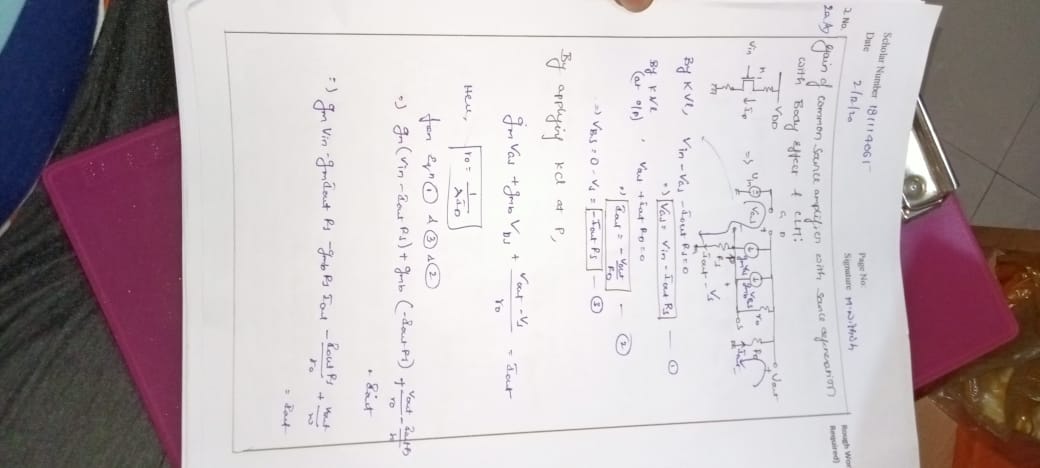 Scholar Number 181114061
Date 2/12/20
Page No:
Signature M. Nithish
Rough Wor
Required)
Q. No.
2a.A) Gain of common source amplifier with source degeneration
with Body effect & CLM:
VDD
Vin
ID
G D
Vout
Vin
Vgs
gmVgs
gmbVBS
ro
RD
Iout
P
RS
Iout
VS
By KVL, Vin - VGS - Iout RS = 0
=> VGS = Vin - Iout RS — ①
By KVL
(at o/p), Vout + Iout RD = 0
=> Iout = - Vout/RD — ②
=> VBS = 0 - VS = -Iout RS — ③
By applying kcl at P,
gm VGS + gmb VBS + (Vout - VS)/ro = Iout
Here, ro = 1/λID
from Eqn ① & ③ & ②
=> gm(Vin - Iout RS) + gmb (-Iout RS) + Vout/ro - Iout RS/ro
= Iout
=> gm Vin - gm Iout RS - gmb RS Iout - Iout RS/ro + Vout/ro
= Iout